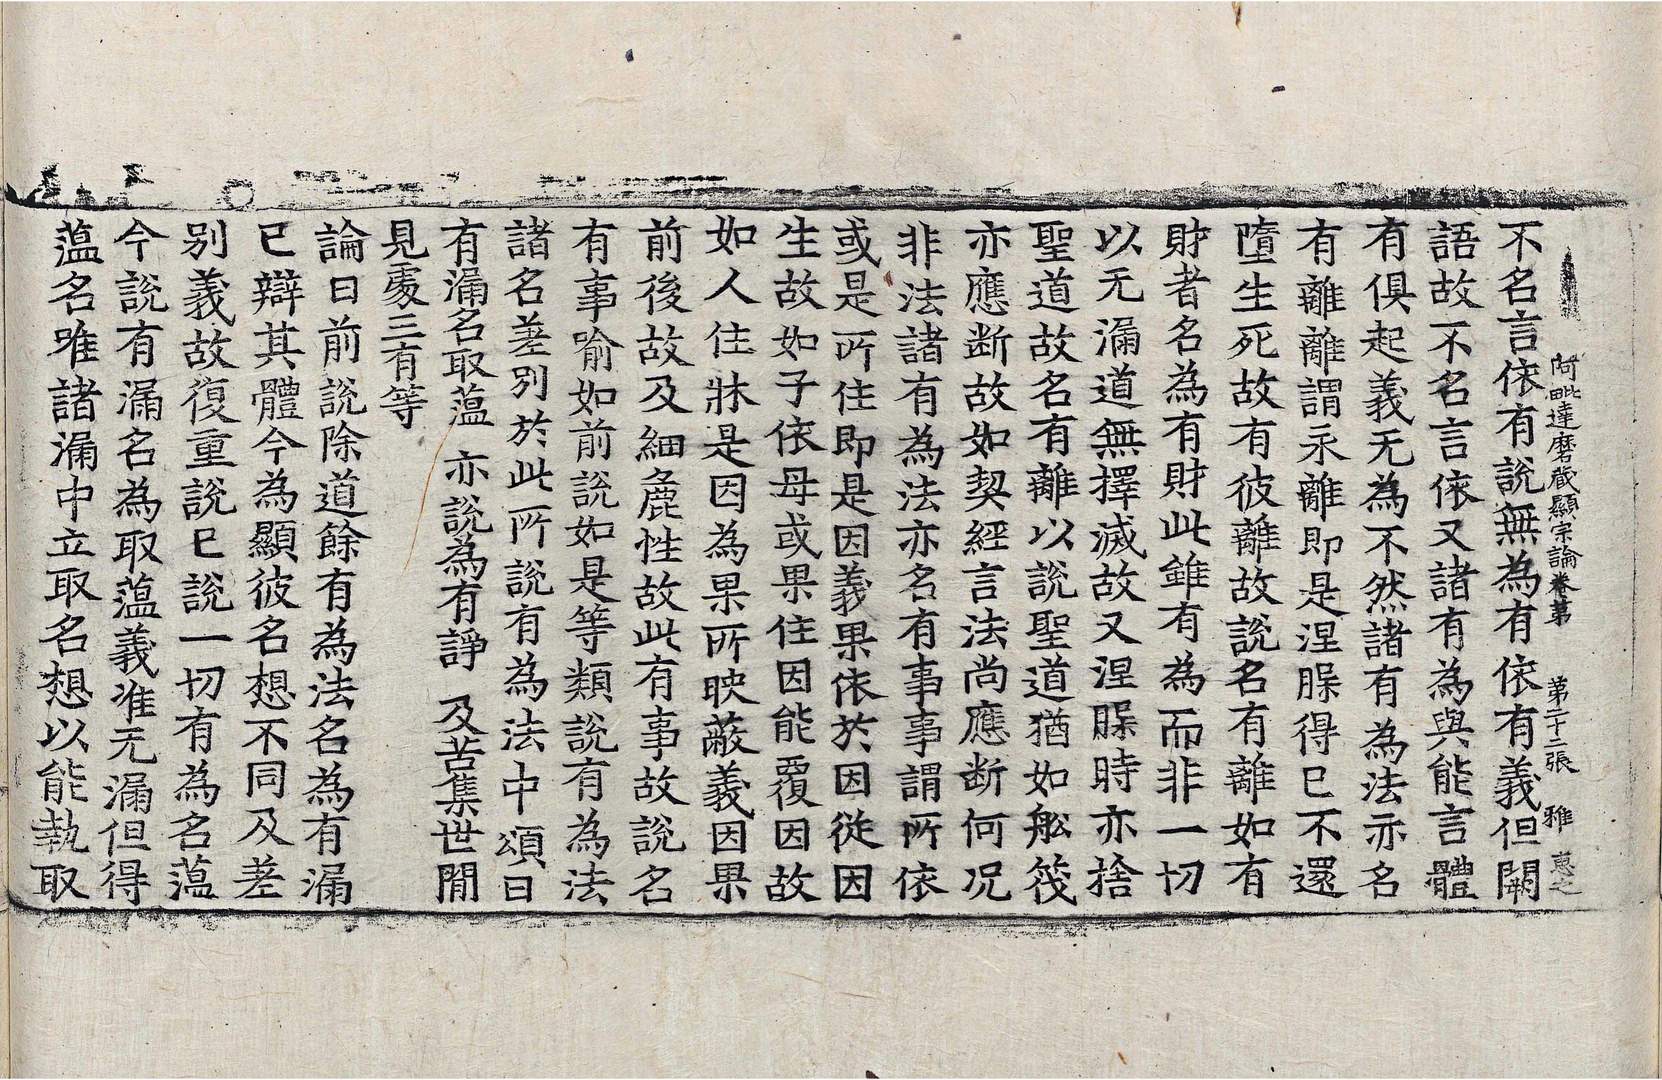 阿毗達磨藏顯宗論卷第　第二十二張　雅　惠之
不名言依有說無為有依有義但闕
語故不名言依又諸有為與能言體
有俱起義无為不然諸有為法亦名
有離離謂永離即是涅脵得已不還
墮生死故有彼離故說名有離如有
財者名為有財此雖有為而非一切
以无漏道無擇滅故又涅脵時亦捨
聖道故名有離以說聖道猶如舩筏
亦應斷故如契經言法尚應断何况
非法諸有為法亦名有事事謂所依
或是所住即是因義果依於因從因
生故如子依母或果住因能覆因故
如人住牀是因為果所映蔽義因果
前後故及細麁性故此有事故說名
有事喻如前說如是等類說有為法
諸名差別於此所說有為法中頌曰
有漏名取蘊　亦說為有諍　及苦集世間
見處三有等
論曰前說除道餘有為法名為有漏
已辯其體今為顯彼名想不同及差
別義故復重說已說一切有為名蘊
今說有漏名為取蘊義准无漏但得
蘊名唯諸漏中立取名想以能執取